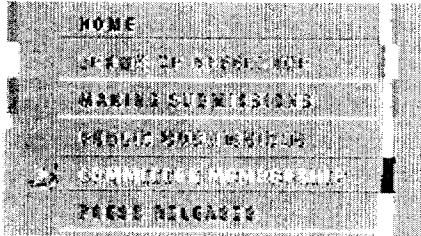 HOME
TERMS OF REFERENCE
MAKING SUBMISSIONS
PUBLIC SUBMISSIONS
COMMITTEE MEMBERSHIP
PRESS RELEASES